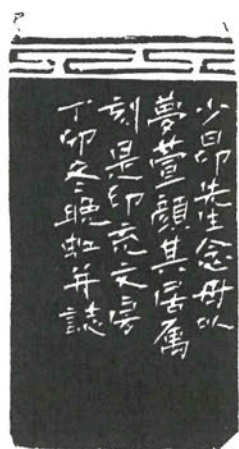 少昂先生念母以
夢萱顔其居属
刻是印充文房
丁卯冬晚虹并誌